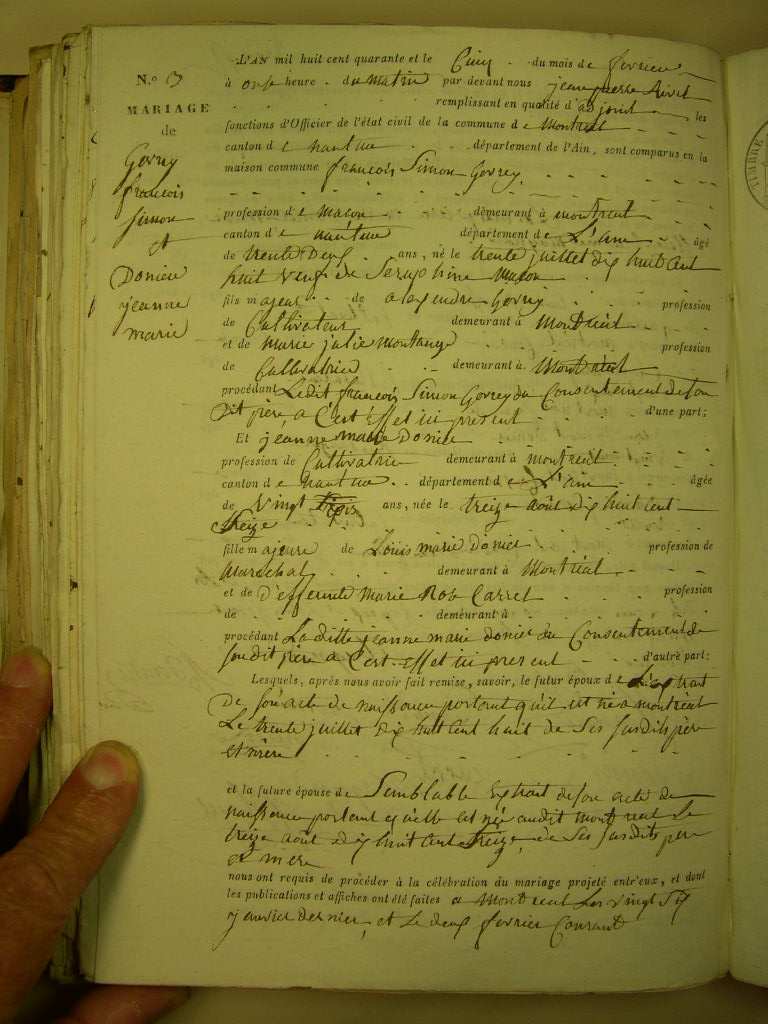 N.o 3
MARIAGE
de
Govrey
françois
simon
et
Donier
jeanne
marie
L'AN mil huit cent quarante et le Cinq du mois de fevrier
à onse heure du matin par devant nous jean pierre Rivet
remplissant en qualité d'adjoint les
fonctions d'Officier de l'état civil de la commune de Montreal
canton de nantua département de l'Ain, sont comparus en la
maison commune françois Simon Govrey
profession de macon demeurant à montreal
canton de nantua département de L'ain âgé
de trente Deux ans, né le trente juillet dix huit cent
huit veuf de Seraphine Macon
fils majeur de alexendre Govrey profession
de Cultivateur demeurant à Montréal
et de marie julie montange profession
de Cultivatrice demeurant à Montréal
procédant Ledit françois Simon Govrey du Consentement de son
Dit père, a C'est Effet ici présent d'une part;
Et jeanne marie Donier
profession de Cultivatrice demeurant à montreal
canton de nantua département de L'ain âgée
de vingt trois ans, née le treize août dix huit cent
treize
fille majeure de Louis marie Donier profession de
Marechal demeurant à Montréal
et de D'effeunte Marie Rob Carret profession
de demeurant à
procédant La ditte jeanne marie donier du Consentement de
sou dit père a C'est Effet ici present d'autre part;
Lesquels, après nous avoir fait remise, savoir, le futur époux de L'extrait
De son acte de naissance portant qu'il est né a montréal
Le trente juillet dix huit Cent huit de Ses susdits père
et mère
et la future épouse de Semblable Extrait de son acte de
naissance portant qu'elle est née audit montreal Le
treize août dix huit Cent treize, de Ses susdits père
et mere
nous ont requis de procéder à la célébration du mariage projeté entr'eux, et dont
les publications et affiches ont été faites a Montreal Les vingt Six
janvier dernier, et Le deux fevrier Courant